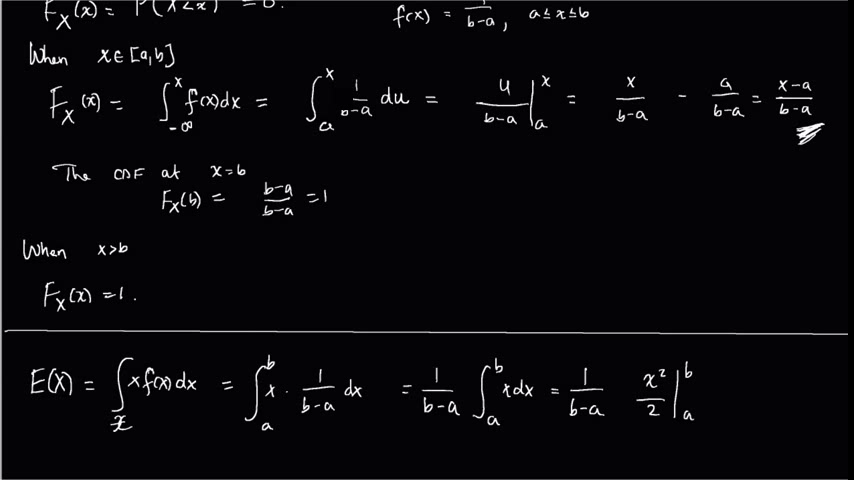 F_X(x) = P(X<x) = 0. f(x) = 1/(b-a), a ≤ x ≤ b
When x ∈ [a,b]
F_X(x) = ∫_{-∞}^{x} f(x)dx = ∫_{a}^{x} 1/(b-a) du = u/(b-a) |_{a}^{x} = x/(b-a) - a/(b-a) = (x-a)/(b-a)
The CDF at x=b
F_X(b) = (b-a)/(b-a) = 1
When x>b
F_X(x) = 1.
E(X) = ∫_{x} x f(x) dx = ∫_{a}^{b} x · 1/(b-a) dx = 1/(b-a) ∫_{a}^{b} x dx = 1/(b-a) x²/2 |_{a}^{b}